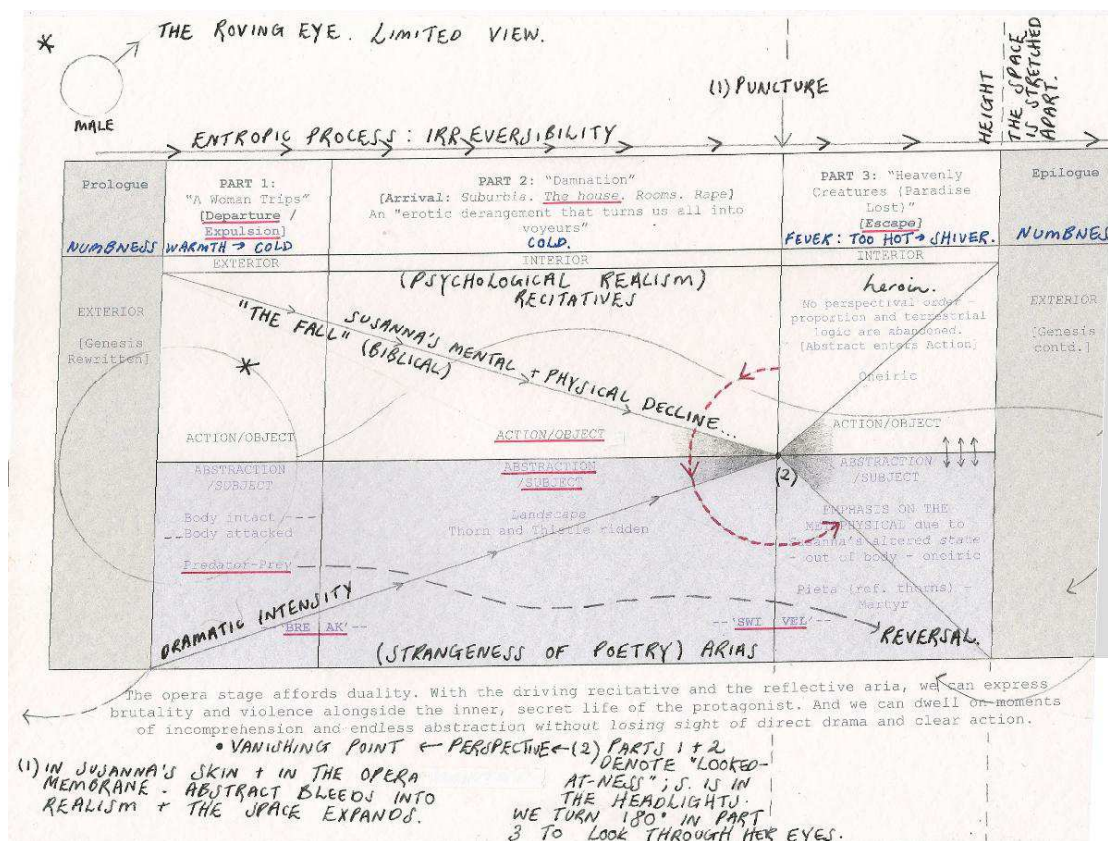 * THE ROVING EYE. LIMITED VIEW.
MALE
(1) PUNCTURE
HEIGHT
THE SPACE
IS STRETCHED
APART.
ENTROPIC PROCESS : IRREVERSIBILITY
Prologue
NUMBNESS
PART 1:
"A Woman Trips"
[Departure /
Expulsion]
WARMTH → COLD
PART 2: "Damnation"
[Arrival: Suburbia. The house. Rooms. Rape]
An "erotic derangement that turns us all into
voyeurs"
COLD.
PART 3: "Heavenly
Creatures (Paradise
Lost)"
[Escape]
FEVER: TOO HOT → SHIVER.
Epilogue
NUMBNESS
EXTERIOR
INTERIOR
INTERIOR
(PSYCHOLOGICAL REALISM)
RECITATIVES
heroin.
No perspectival order –
proportion and terrestrial
logic are abandoned.
[Abstract enters Action]
Oneiric
EXTERIOR
[Genesis
Rewritten]
EXTERIOR
[Genesis
contd.]
"THE FALL"
(BIBLICAL)
SUSANNA'S MENTAL + PHYSICAL DECLINE...
*
ACTION/OBJECT
ACTION/OBJECT
ACTION/OBJECT
ABSTRACTION
/SUBJECT
ABSTRACTION
/SUBJECT
(2)
ABSTRACTION
/SUBJECT
Body intact /---
--Body attacked
Predator-Prey
Landscape
Thorn and Thistle ridden
EMPHASIS ON THE
METAPHYSICAL due to
Susanna's altered state
– out of body – oneiric
Pieta (ref. thorns) –
Martyr
DRAMATIC INTENSITY
--'BRE AK'--
--'SWI VEL'--
REVERSAL.
(STRANGENESS OF POETRY) ARIAS
The opera stage affords duality. With the driving recitative and the reflective aria, we can express
brutality and violence alongside the inner, secret life of the protagonist. And we can dwell on moments
of incomprehension and endless abstraction without losing sight of direct drama and clear action.
• VANISHING POINT ← PERSPECTIVE ← (2) PARTS 1 + 2
DENOTE "LOOKED-
AT-NESS"; S. IS IN
THE HEADLIGHTS.
WE TURN 180° IN PART
3 TO LOOK THROUGH HER EYES.
(1) IN SUSANNA'S SKIN + IN THE OPERA
MEMBRANE - ABSTRACT BLEEDS INTO
REALISM + THE SPACE EXPANDS.